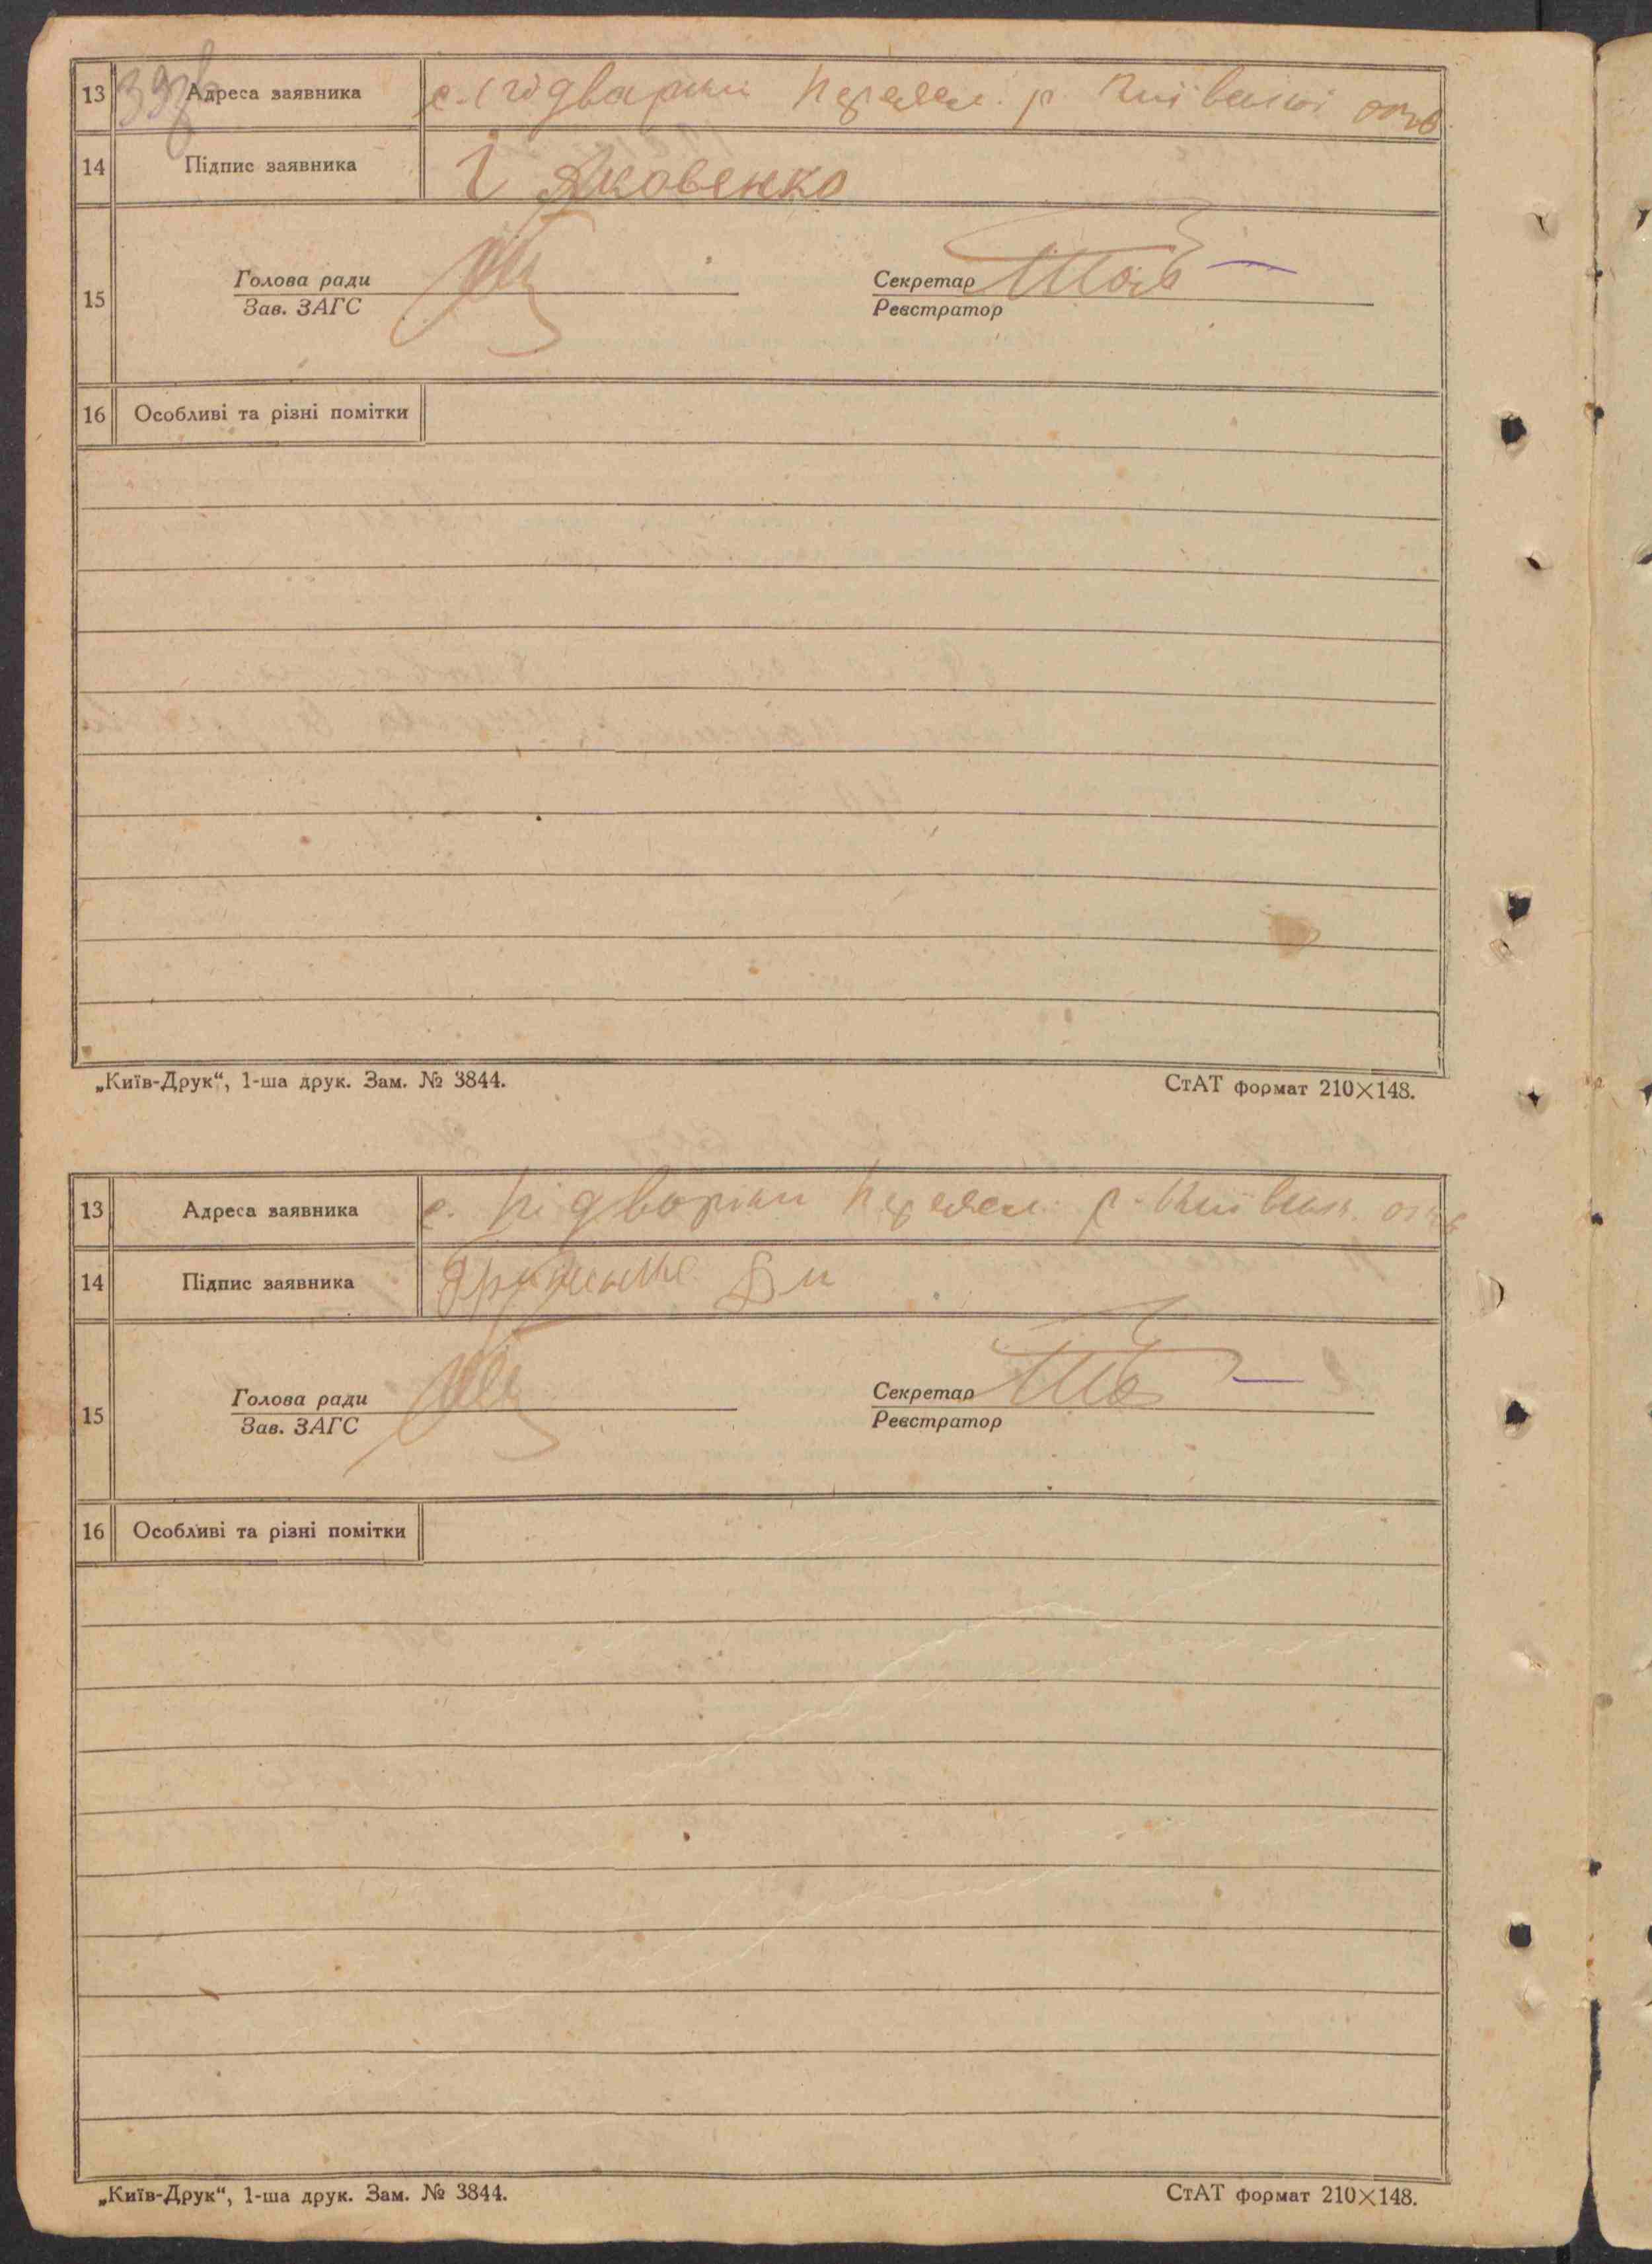 13 Адреса заявника с. Підварки Переясл. р. Київської обл
14 Підпис заявника І Яковенко
15 Голова ради Секретар
Зав. ЗАГС Реєстратор
16 Особливі та різні помітки
„Київ-Друк“, 1-ша друк. Зам. № 3844. СтАТ формат 210×148.
13 Адреса заявника с. Підворки Переясл. р. Київськ. обл
14 Підпис заявника
15 Голова ради Секретар
Зав. ЗАГС Реєстратор
16 Особливі та різні помітки
„Київ-Друк“, 1-ша друк. Зам. № 3844. СтАТ формат 210×148.